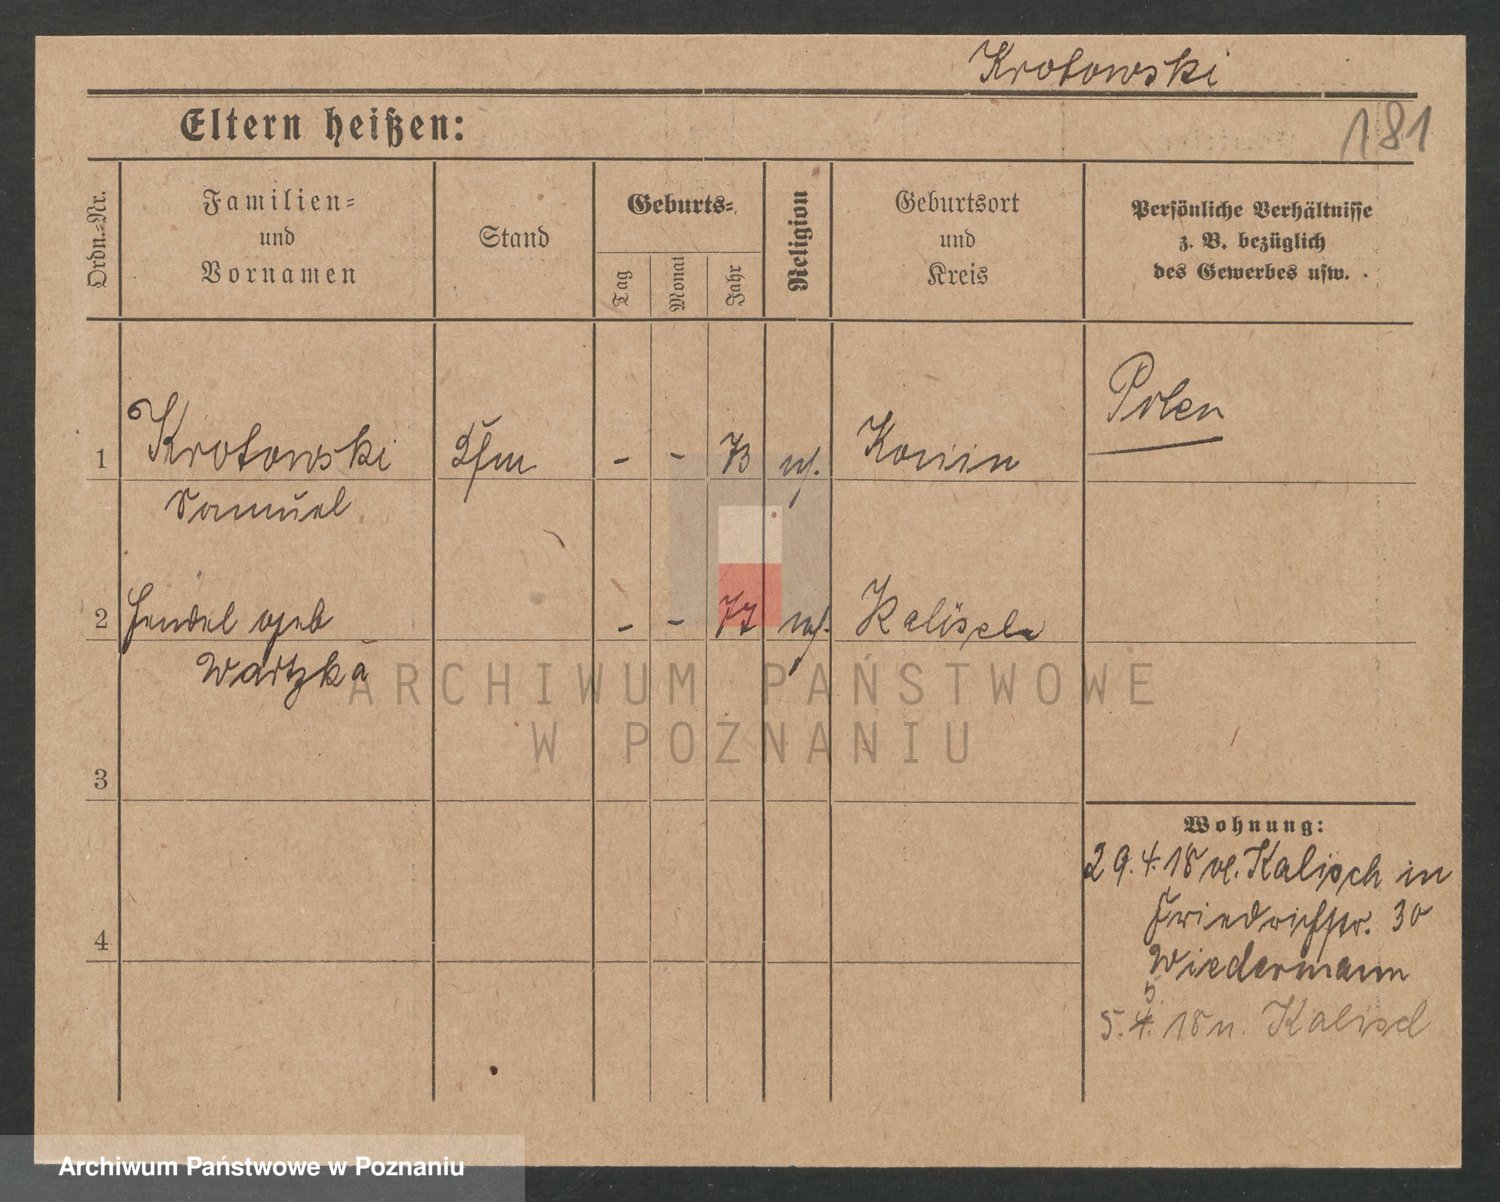 Krotowski
181
Eltern heißen:
Ordn.-Nr.
Familien-
und
Vornamen
Stand
Geburts-
Tag
Monat
Jahr
Religion
Geburtsort
und
Kreis
Persönliche Verhältnisse
z. B. bezüglich
des Gewerbes usw.
1 Krotowski Kfm - - 73 Konin Polen
Samuel
2 Hendel geb - - 77 Kalisch
Wartzka
3
4
Wohnung:
29.4.18 v. Kalisch in
Friedrichstr. 30
Wiedermann
5
5.4.18 n. Kalisch
ARCHIWUM PAŃSTWOWE
W POZNANIU
Archiwum Państwowe w Poznaniu